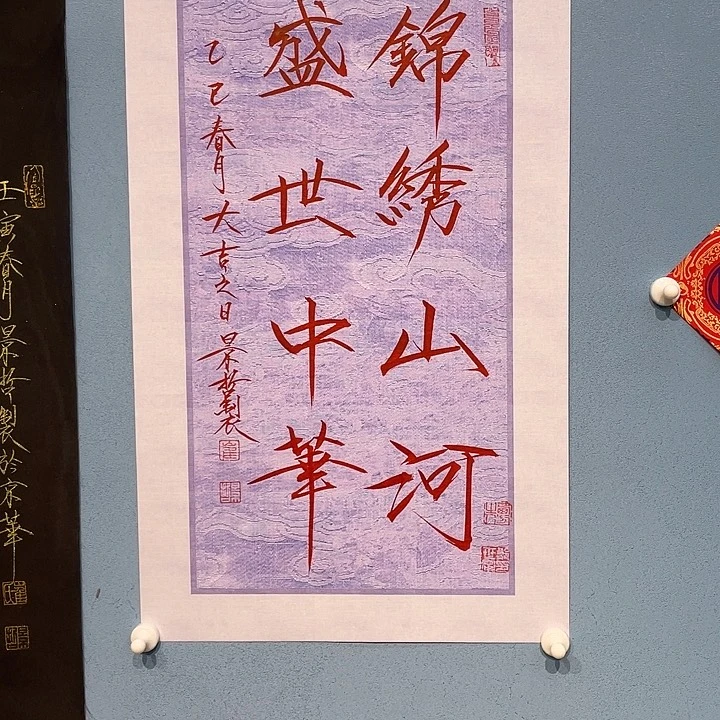 錦綉山河
盛世中華
乙巳春月大吉之日景哲製
壬寅春月景哲製於京華